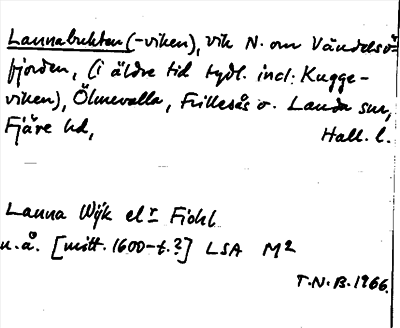 Launabukten (-viken), vik N. om Vändelsö-
fjorden, (i äldre tid tydl. incl. Kugge-
viken), Ölmevalla, Frillesås o. Landa snr,
Fjäre hd, Hall. l.
Launa Wijk el^r Fiohl
u.å. [mitt. 1600-t.?] LSA M²
T.N.B. 1966.